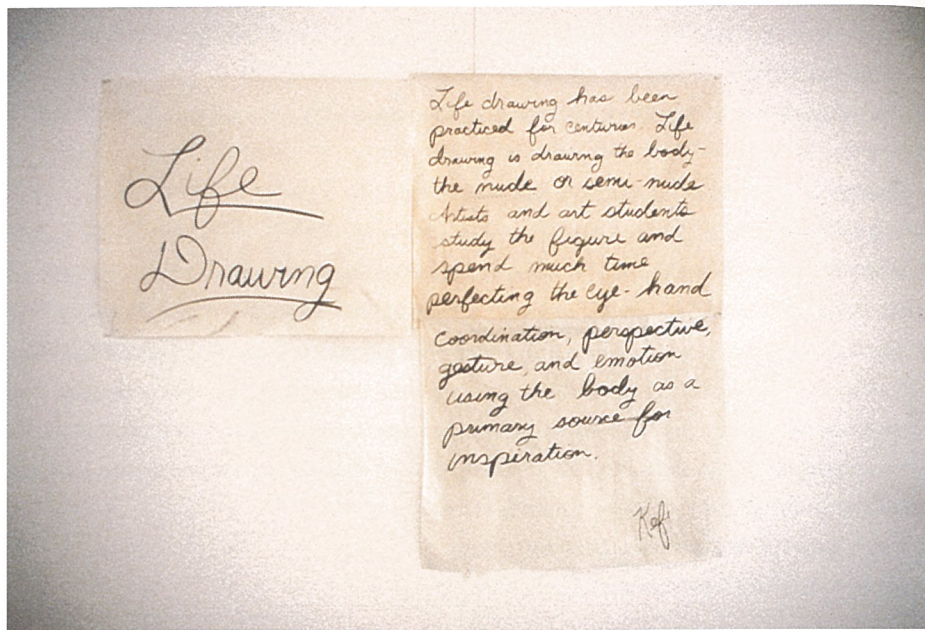 Life
Drawing
Life drawing has been
practiced for centuries. Life
drawing is drawing the body-
the nude or semi-nude
Artists and art students
study the figure and
spend much time
perfecting the eye-hand
coordination, perspective,
gesture, and emotion
using the body as a
primary source for
inspiration.